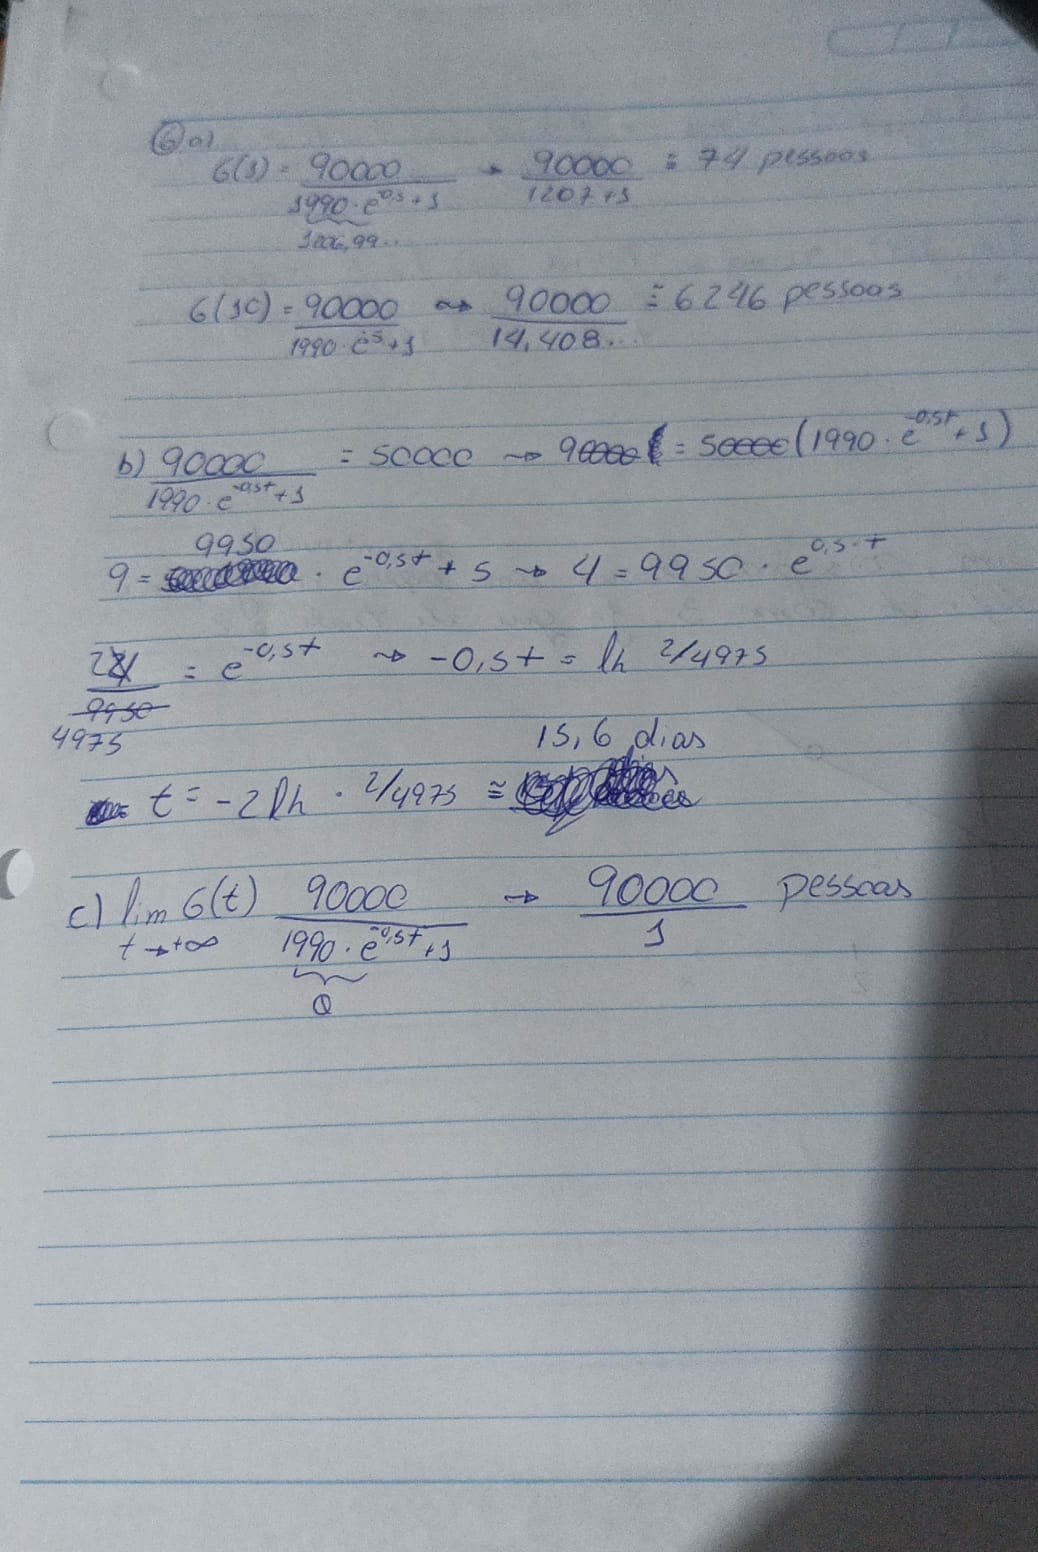 6) a)
G(1) = 90000 / 1990 · e^0,5 + 1 → 90000 / 1207 + 1 ≅ 74 pessoas
1206,99...
G(10) = 90000 / 1990 · e^-5 + 1 ⇝ 90000 / 14,408... ≅ 6246 pessoas
b) 90000 / 1990 · e^-0,5t + 1 = 50000 ⇝ 90000 = 50000 (1990 · e^-0,5t + 1)
9 = 9950 · e^-0,5t + 5 ⇝ 4 = 9950 · e^0,5·t
2 4 / 9950 4975 = e^-0,5t ⇝ -0,5t = ln 2/4975
t = -2 ln · 2/4975 ≅ 15,6 dias
c) lim t→+∞ G(t) 90000 / 1990 · e^-0,5t + 1 → 90000 / 1 pessoas
0